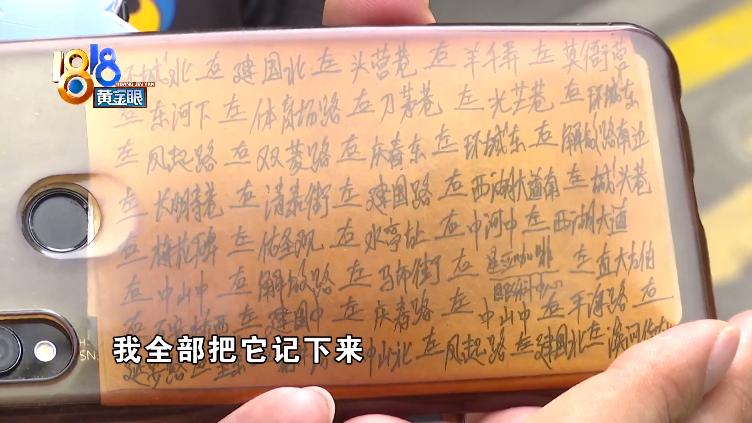 1818
HUANGJINYAN
黄金眼
环城北 左 建国北 左 头营巷 右 羊千弄 左 英衙营
左 东河下 左 体育场路 右 刀茅巷 左 光芒巷 右 环城东
左 凤起路 右 双菱路 右 庆春东 左 环城东 右 解放路南边
左 长明寺巷 右 清泰街 左 建国路 右 西湖大道南 左 城头巷
右 梅花碑 左 佑圣观 右 水亭址 右 中河中 左 西湖大道
右 中山中 右 解放路 右 马市街 右 星巴咖啡 左 直大方伯
左 建国中 左 庆春路 左 中山中 右 平海路 右
延安路 中山北 左 凤起路 右 建国北 左
SN
我全部把它记下来